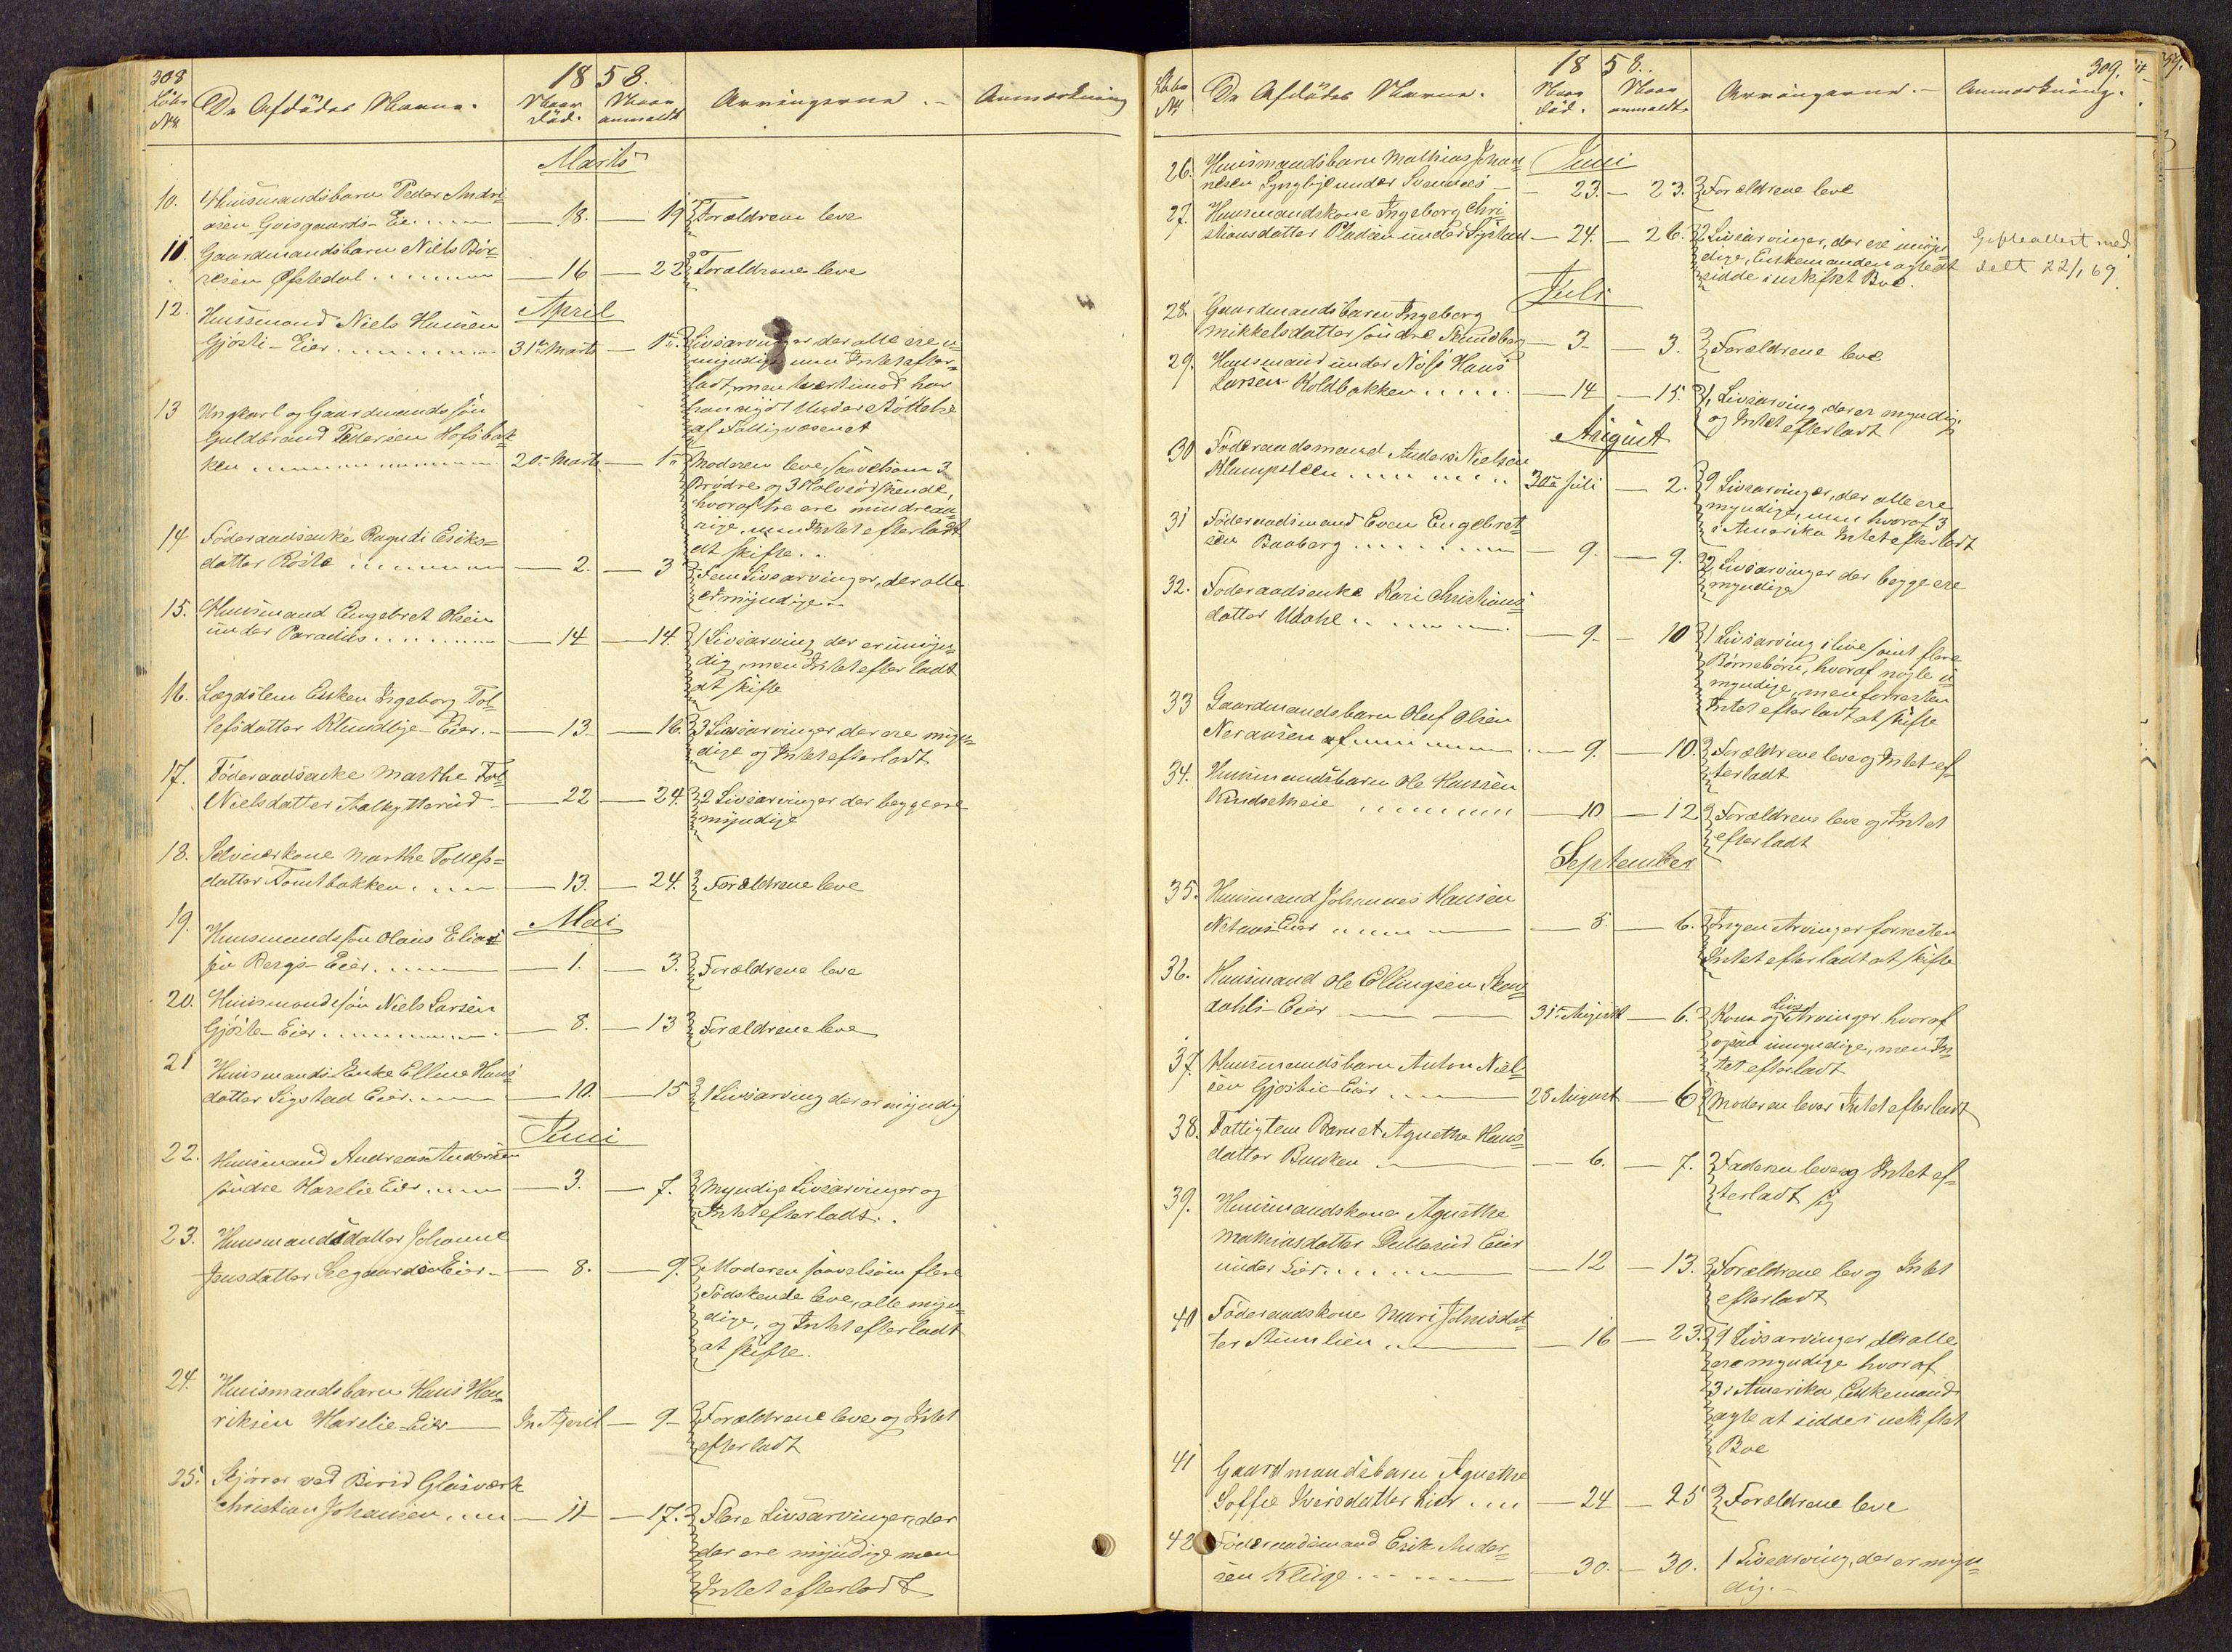 308
1858.
Löbe
No
De Afdödes Navne.
Naar
död.
Naar
anmeldt
Arvingerne. -
Anmærkning
Marts
10. Huusmandsbarn Peder Andri-
asen Eie
18. 19 Forældrene leve
11. Gaardmandsbarn Niels Bör-
resen Öfstedal
16 22 Forældrene leve
April
12. Huusmand Niels Hansen
Gjösti-Eier
31te Marts 1te Livsarvinger der alle ere u
myndige men Intet efter-
ladt, men tvertimod har
han nydt Understöttelse
af Fattigvæsenet
13 Ungkarl og Gaardmandssön
Guldbrand Pedersen Hofsbak-
ken
20de Marts 1te Moderen leve, saavelsom 3
Brödre og 3 Halvsödskende,
hvoraf tre ere mindreaa-
rige, men Intet efterladt
at skifte..
14 Föderaadsenke Ragndi Eriks-
datter Röste
2. 3 Fem Livsarvinger, der alle
er myndige
15. Huusmand Engebret Olsen
under Paradiis
14 14. 1 Livsarving der er umyn-
dig, men Intet efterladt
at skifte
16. Lægdslem Enken Ingeborg Tol-
lefsdatter Klundlije-Eier.
13 16. 3 Livsarvinger der ere myn-
dige og Intet efterladt
17. Föderaadsenke Marthe
Nielsdatter
22 24. 2 Livsarvinger der begge ere
myndige
18. Selveierkone Marthe Tollefs-
datter Tomtbakken
13. 24. Forældrene leve
Mai
19. Huusmandssön Olaus Elias-
sen Bergs-Eier.
1. 3. Forældrene leve
20. Huusmandssön Niels Larsen
Gjöste-Eier
8. 13 Forældrene leve
21 Huusmands Enke Ellene Hans-
datter Sigstad Eier.
10. 15 1 Livsarving der er myndig
Juni
22. Huusmand Andreas Andersen
söndre Harelie Eier
3. 7. Myndige Livsarvinger og
Intet efterladt..
23. Huusmandsdatter Johanne
Jensdatter Seegaards Eier.
8. 9. Moderen saavelsom flere
Södskende leve, alle myn-
dige, og Intet efterladt
at skifte.
24. Huusmandsbarn Hans Hen-
riksen Harelie-Eier
In April 9 Forældrene leve og Intet
efterladt
25. ved Birid Glasværk
Christian Johansen
11 17. Flere Livsarvinger, der
der ere myndige men
Intet efterladt
309.
1858.
Löbe
No
De Afdödes Navne.
Naar
död.
Naar
anmeldt
Arvingerne. -
Anmærkning.
26. Huusmandsbarn Mathias Johan-
nesen Lyngbye under Svennees
Juni
23. 23. Forældrene leve
27. Huusmandskone Ingeborg Chri-
stiansdatter Pladsen under Sigstad
24. 26. 2 Livsarvinger, der ere umyn-
dige, Enkemanden agtedt
sidde i uskiftet Boe.
Giftealtest med
delt 22/1 69.
Juli
28. Gaardmandsbarn Ingeborg
Mikkelsdatter söndre Skundberg
3 3. Forældrene leve
29. Huusmand under Hans
Larsen Koldbakken
14 15. 1 Livsarving, der er myndig
og Intet efterladt
August
30 Föderaadsmand Anders Nielsen
Klumpsteen
30te Juli 2. 9 Livsarvinger, der alle ere
myndige, men hvoraf 3
i Amerika Intet efterladt
31 Föderaadsmand Even Engebret-
sen Baaberg
9. 9. 2 Livsarvinger der begge ere
myndige
32. Föderaadsenke Kari Christians-
datter Udahl
9. 10 1 Livsarving i live samt flere
Börnebörn, hvoraf nogle u
myndige, men forresten
Intet efterladt at skifte
33 Gaardmandsbarn Oluf Olsen
9. 10. Forældrene leve og Intet ef-
terladt
34. Huusmandsbarn Ole Hansen
10 12 Forældrene leve og Intet
efterladt
September
35. Huusmand Johannes Hansen
Eier
5. 6. Ingen Arvinger forresten
Intet efterladt at skifte
36. Huusmand Ole Ellingsen Skon-
dahls-Eier
31te August 6. Kone og Livs Arvinger, hvoraf
ogsaa umyndige, men In-
tet efterladt
37. Huusmandsbarn Anton Niel-
sen Gjöstie-Eier
28 August 6 Moderen lever Intet efterladt
38. Fattiglem Barnet Agnethe Hans-
datter
6. 7. Faderen lever og Intet ef-
terladt sig
39. Huusmandskone Agnethe
Mathiasdatter Dullerud Eier
under Eier
12 13. Forældrene lev og Intet
efterladt
40 Föderaadskone Mari Johnsdat-
ter
16 23. 9 Livsarvinger, der alle
ere myndige hvoraf
3 i Amerika, Enkemand
agte at sidde i uskiftet
Boe
41 Gaardmandsbarn Agnethe
Soffie Iversdatter Lier
24 25 Forældrene leve
42 Föderaadsmand Erik Ander-
sen Kluge
30. 30. 1 Livsarving, der er myn-
dig.-